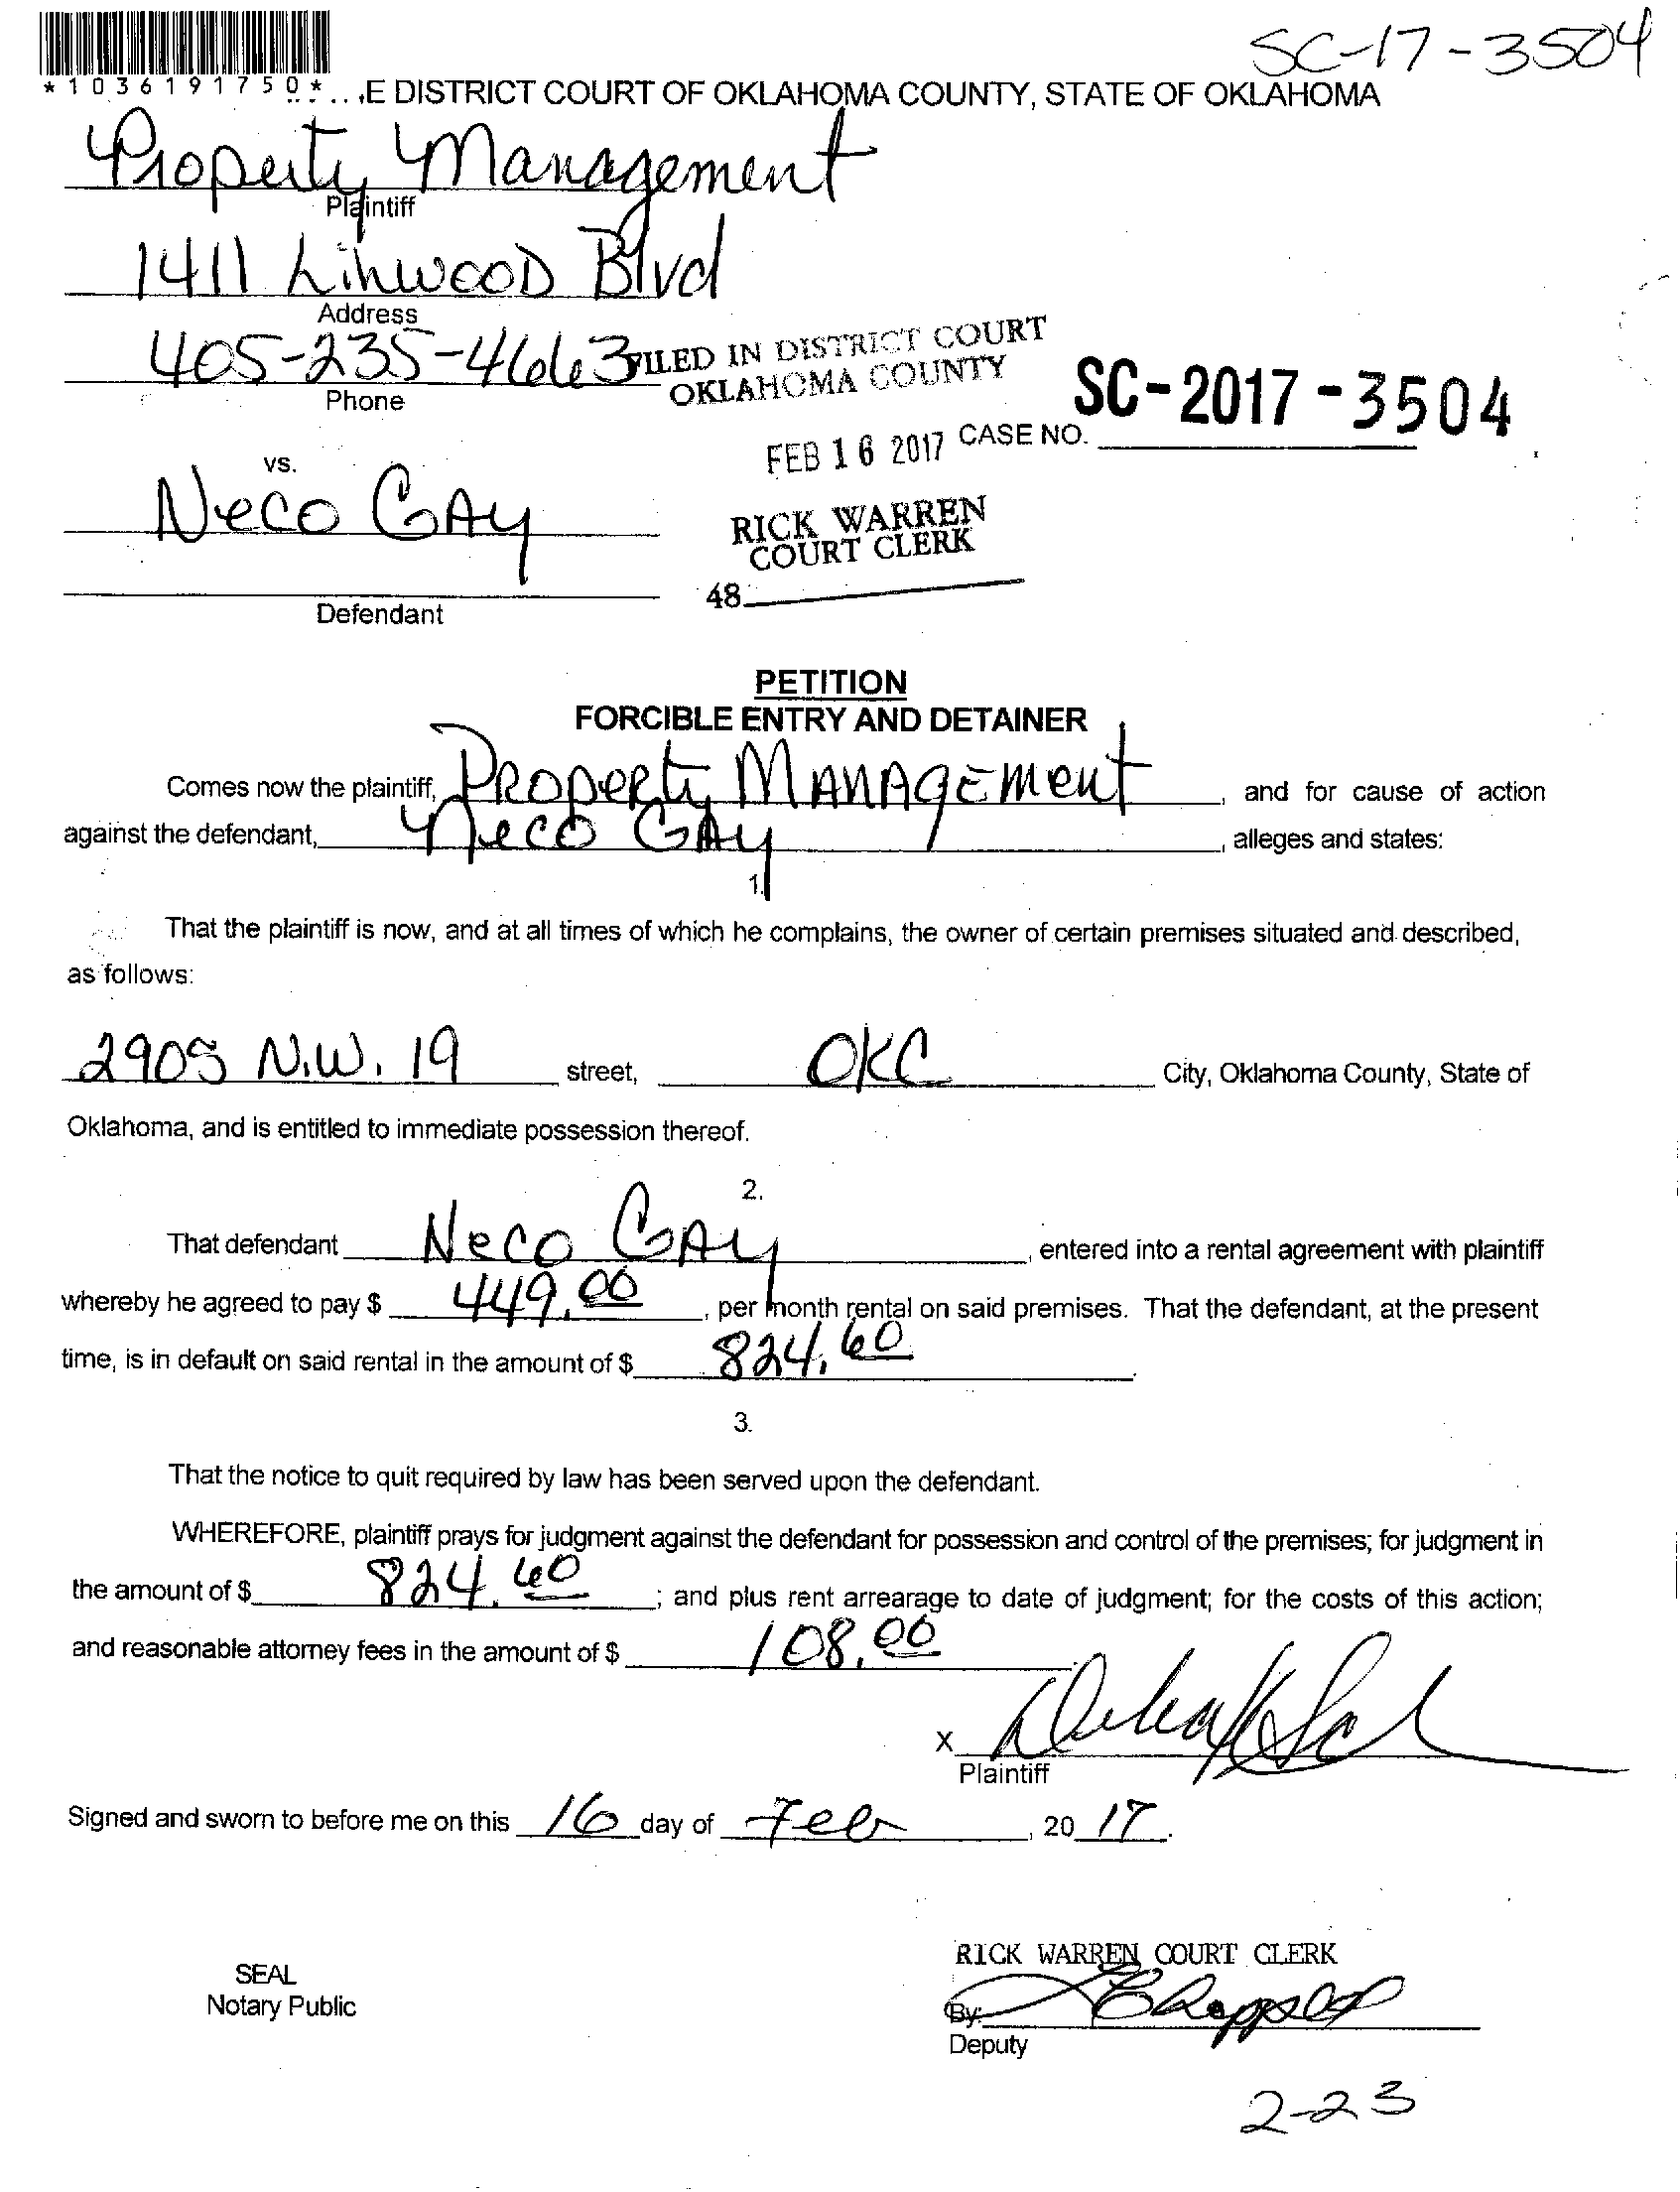 SC-17-3504
*1036191750*
E DISTRICT COURT OF OKLAHOMA COUNTY, STATE OF OKLAHOMA
Property Management
Plaintiff
1411 Linwood Blvd
Address
405-235-4663
Phone
FILED IN DISTRICT COURT
OKLAHOMA COUNTY
FEB 16 2017
CASE NO. SC-2017-3504
vs.
Neco Gay
RICK WARREN
COURT CLERK
48
Defendant
PETITION
FORCIBLE ENTRY AND DETAINER
Comes now the plaintiff, Property Management, and for cause of action
against the defendant, Neco Gay, alleges and states:
1.
That the plaintiff is now, and at all times of which he complains, the owner of certain premises situated and described,
as follows:
2905 N.W. 19 street, OKC City, Oklahoma County, State of
Oklahoma, and is entitled to immediate possession thereof.
2.
That defendant Neco Gay, entered into a rental agreement with plaintiff
whereby he agreed to pay $ 449.00, per month rental on said premises. That the defendant, at the present
time, is in default on said rental in the amount of $ 824.60.
3.
That the notice to quit required by law has been served upon the defendant.
WHEREFORE, plaintiff prays for judgment against the defendant for possession and control of the premises; for judgment in
the amount of $ 824.60; and plus rent arrearage to date of judgment; for the costs of this action;
and reasonable attorney fees in the amount of $ 108.00
X
Plaintiff
Signed and sworn to before me on this 16 day of Feb, 2017.
RICK WARREN COURT CLERK
SEAL
Notary Public
By:
Deputy
2-23